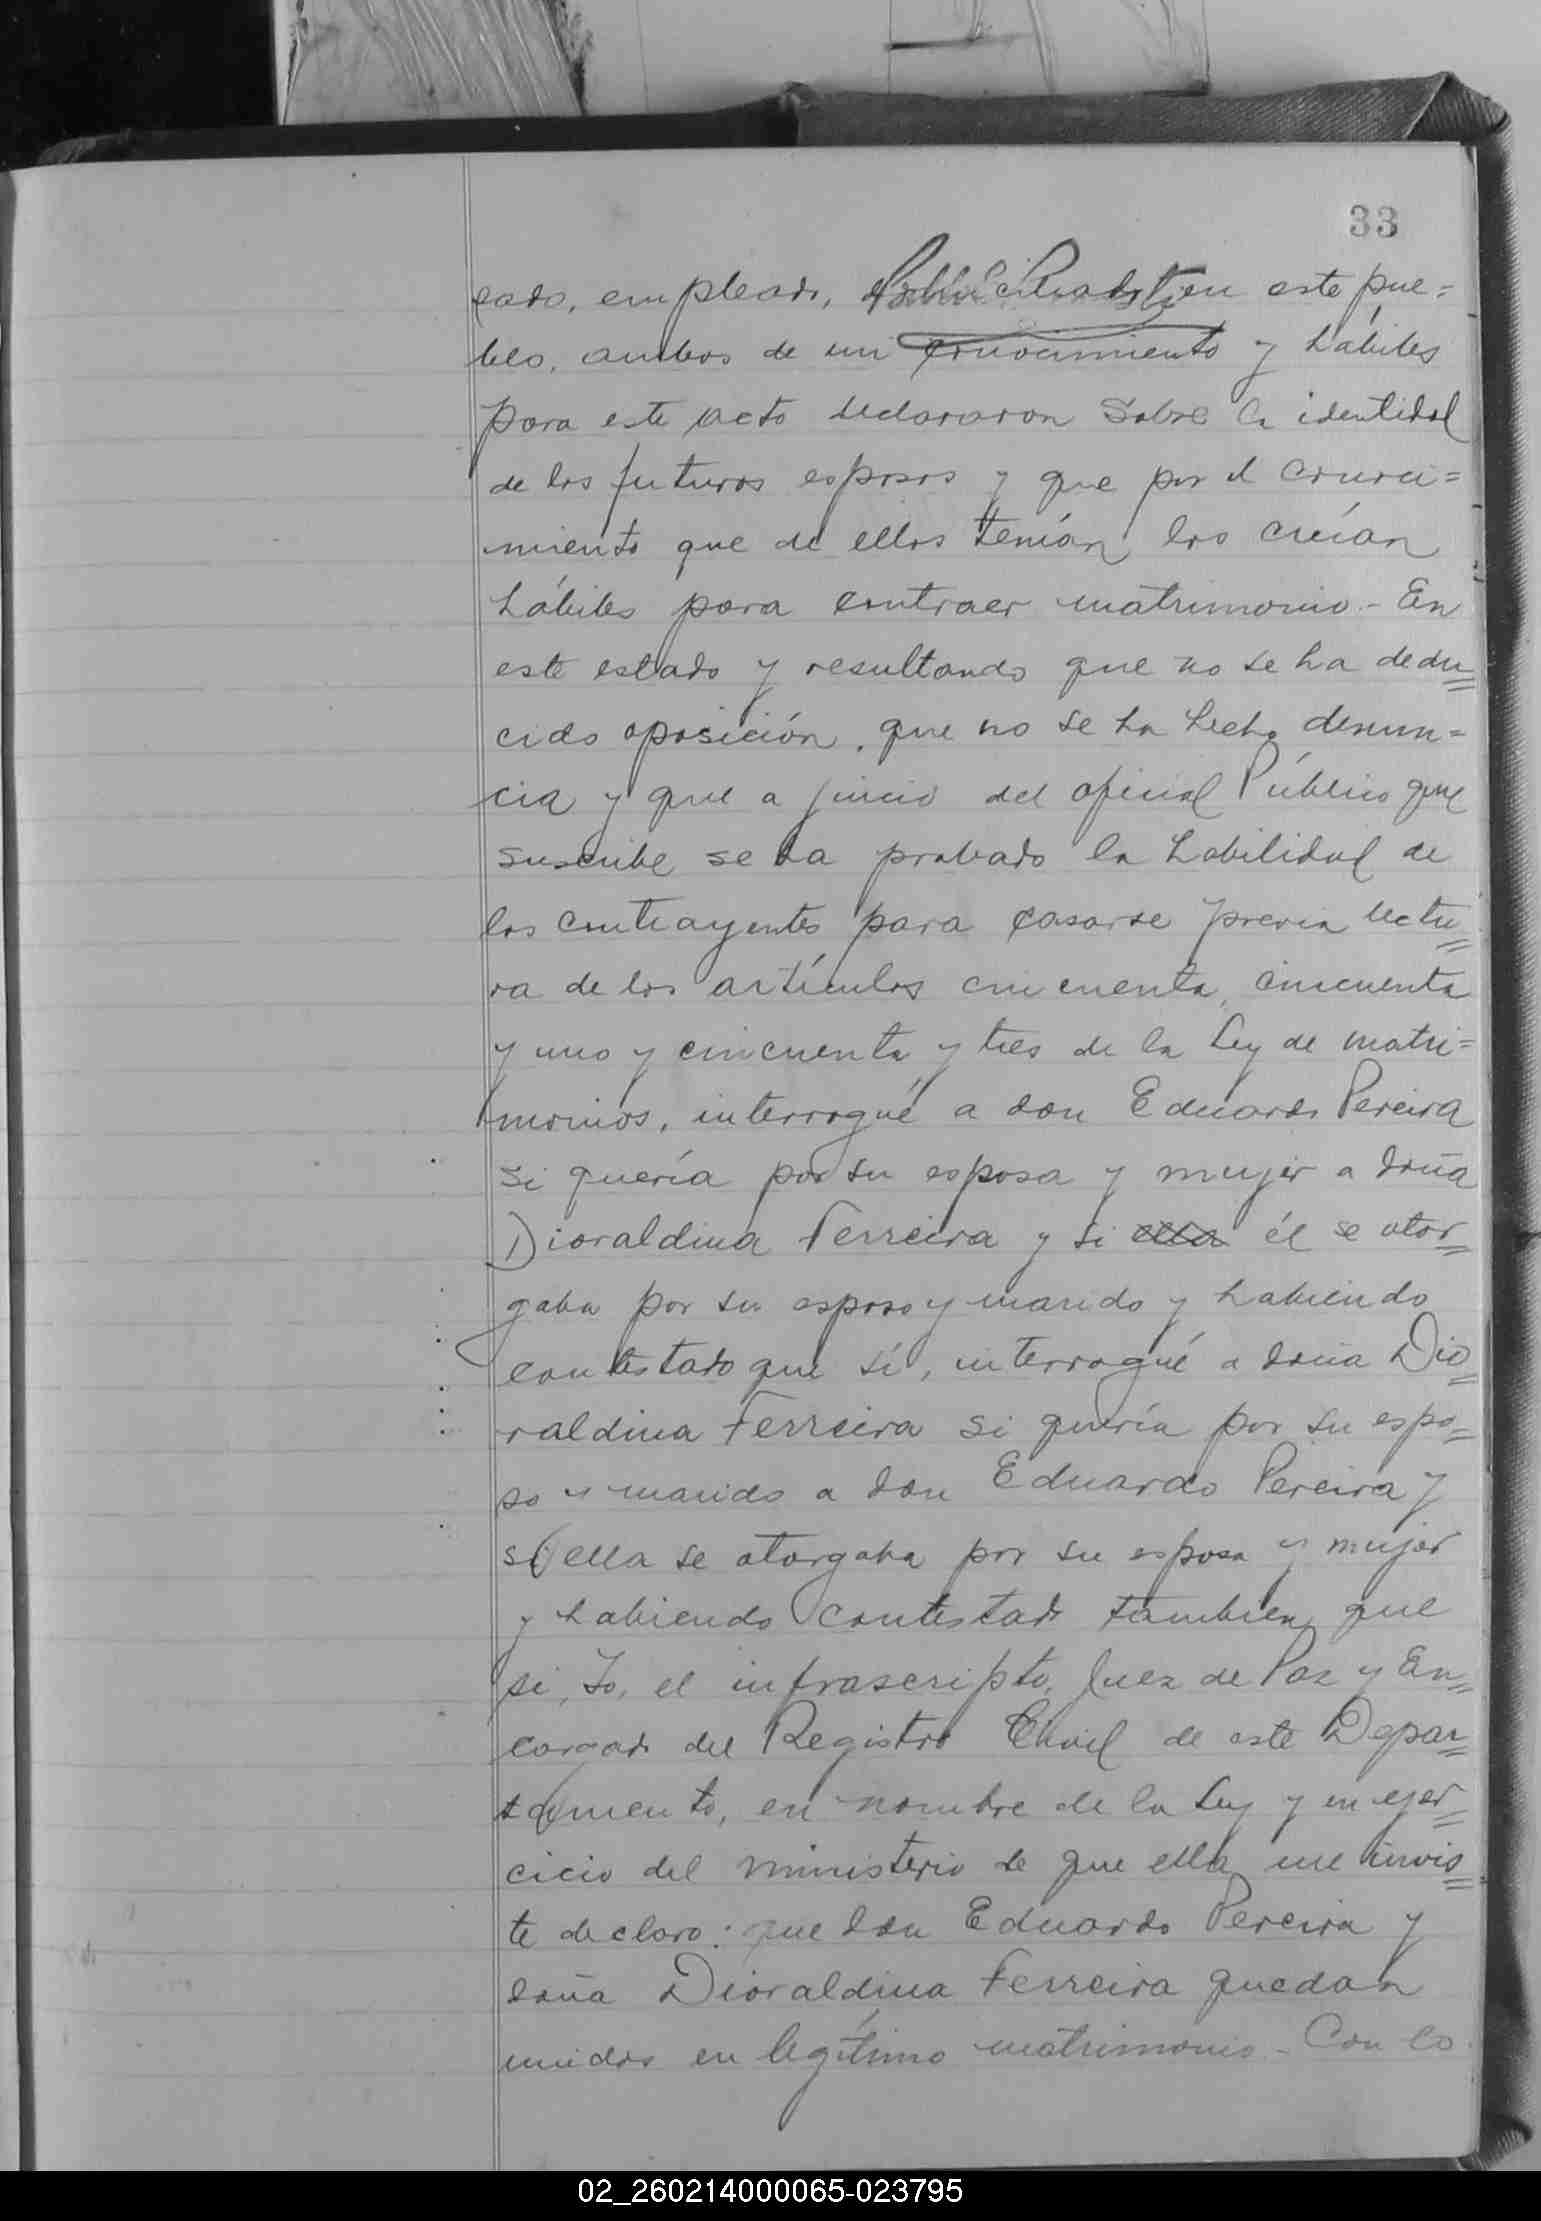 33
cado, empleado, en este pue=
blo, ambos de mi conocimiento y hábiles
para este acto declararon sobre la identidad
de los futuros esposos y que por el conoci=
miento que de ellos tenían los creían
hábiles para contraer matrimonio.- En
este estado y resultando que no se ha dedu=
cido oposición, que no se ha hecho denun=
cia y que a juicio del oficial Público que
suscribe se ha probado la habilidad de
los contrayentes para casarse previa lectu=
ra de los artículos cincuenta, cincuenta
y uno y cincuenta y tres de la Ley de matri=
monios, interrogué a don Eduardo Pereira
si quería por su esposa y mujer a doña
Dioraldina Ferreira y si ella él se otor=
gaba por su esposo y marido y habiendo
contestado que sí, interrogué a doña Dio=
raldina Ferreira si quería por su espo=
so y marido a don Eduardo Pereira y
si ella se otorgaba por su esposa y mujer
y habiendo contestado tambien que
si, Yo, el infrascripto, Juez de Paz y En=
cargado del Registro Civil de este Depar=
tamento, en nombre de la Ley y en ejer=
cicio del ministerio de que ella me invis=
te declaro: que don Eduardo Pereira y
doña Dioraldina Ferreira quedan
unidos en legítimo matrimonio - Con lo
02_260214000065-023795